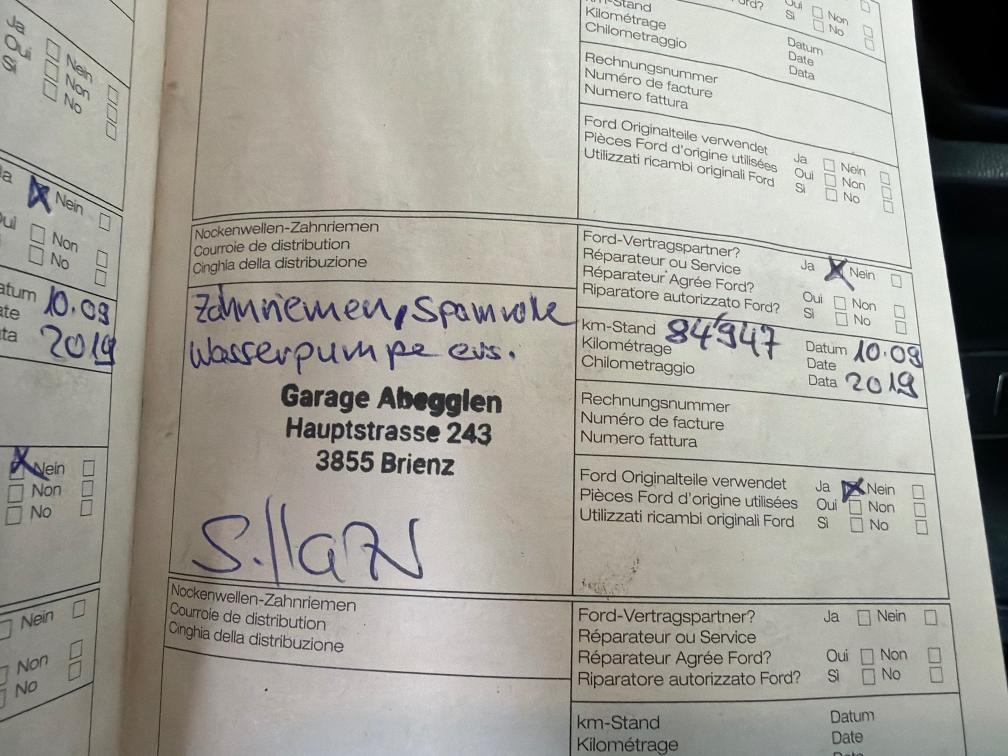 Ja
Nein
Oui
Non
Si
No
Ja
Nein
Oui
Non
No
Datum 10.09
Date
Data 2019
Nein
Non
No
Nein
Non
No
km-Stand
Kilométrage
Chilometraggio
Datum
Date
Data
Oui Non
Si No
Rechnungsnummer
Numéro de facture
Numero fattura
Ford Originalteile verwendet
Pièces Ford d'origine utilisées
Utilizzati ricambi originali Ford
Ja Nein
Oui Non
Si No
Nockenwellen-Zahnriemen
Courroie de distribution
Cinghia della distribuzione
Zahnriemen, Spannrolle
Wasserpumpe ers.
Garage Abegglen
Hauptstrasse 243
3855 Brienz
Ford-Vertragspartner?
Réparateur ou Service
Réparateur Agrée Ford?
Riparatore autorizzato Ford?
Ja Nein
Oui Non
Si No
km-Stand 84'947
Kilométrage
Chilometraggio
Datum 10.09
Date
Data 2019
Rechnungsnummer
Numéro de facture
Numero fattura
Ford Originalteile verwendet
Pièces Ford d'origine utilisées
Utilizzati ricambi originali Ford
Ja Nein
Oui Non
Si No
Nockenwellen-Zahnriemen
Courroie de distribution
Cinghia della distribuzione
Ford-Vertragspartner?
Réparateur ou Service
Réparateur Agrée Ford?
Riparatore autorizzato Ford?
Ja Nein
Oui Non
Si No
km-Stand
Kilométrage
Datum
Date